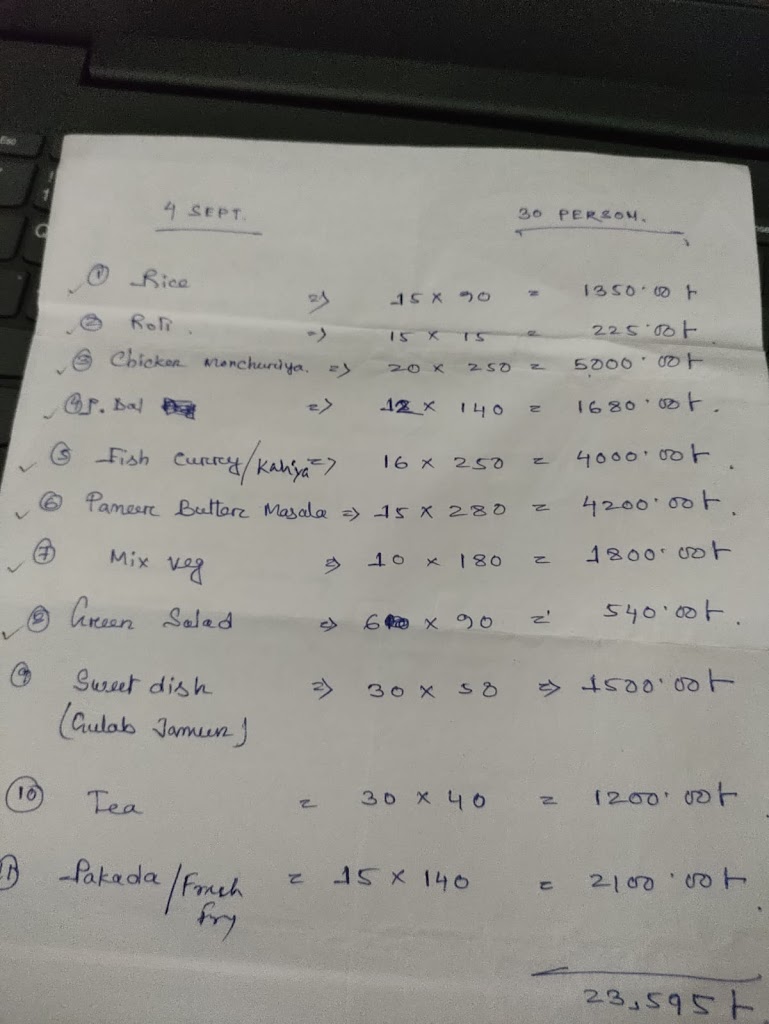 4 SEPT. 30 PERSON.
① Rice => 15 x 90 = 1350.00 t
② Roti. => 15 x 15 = 225.00t
③ Chicken Manchuriya. => 20 x 250 = 5000.00t
④ P. Dal => 12 x 140 = 1680.00t.
⑤ Fish Currey/Kaliya => 16 x 250 = 4000.00t.
⑥ Paneer Butter Masala => 15 x 280 = 4200.00t.
⑦ Mix veg => 10 x 180 = 1800.00t
⑧ Green Salad => 6 x 90 = 540.00t.
⑨ Sweet dish => 30 x 50 => 1500.00t
(Gulab Jamun)
⑩ Tea = 30 x 40 = 1200.00t
⑪ Pakada/Frnch = 15 x 140 = 2100.00t.
fry
23,595 t